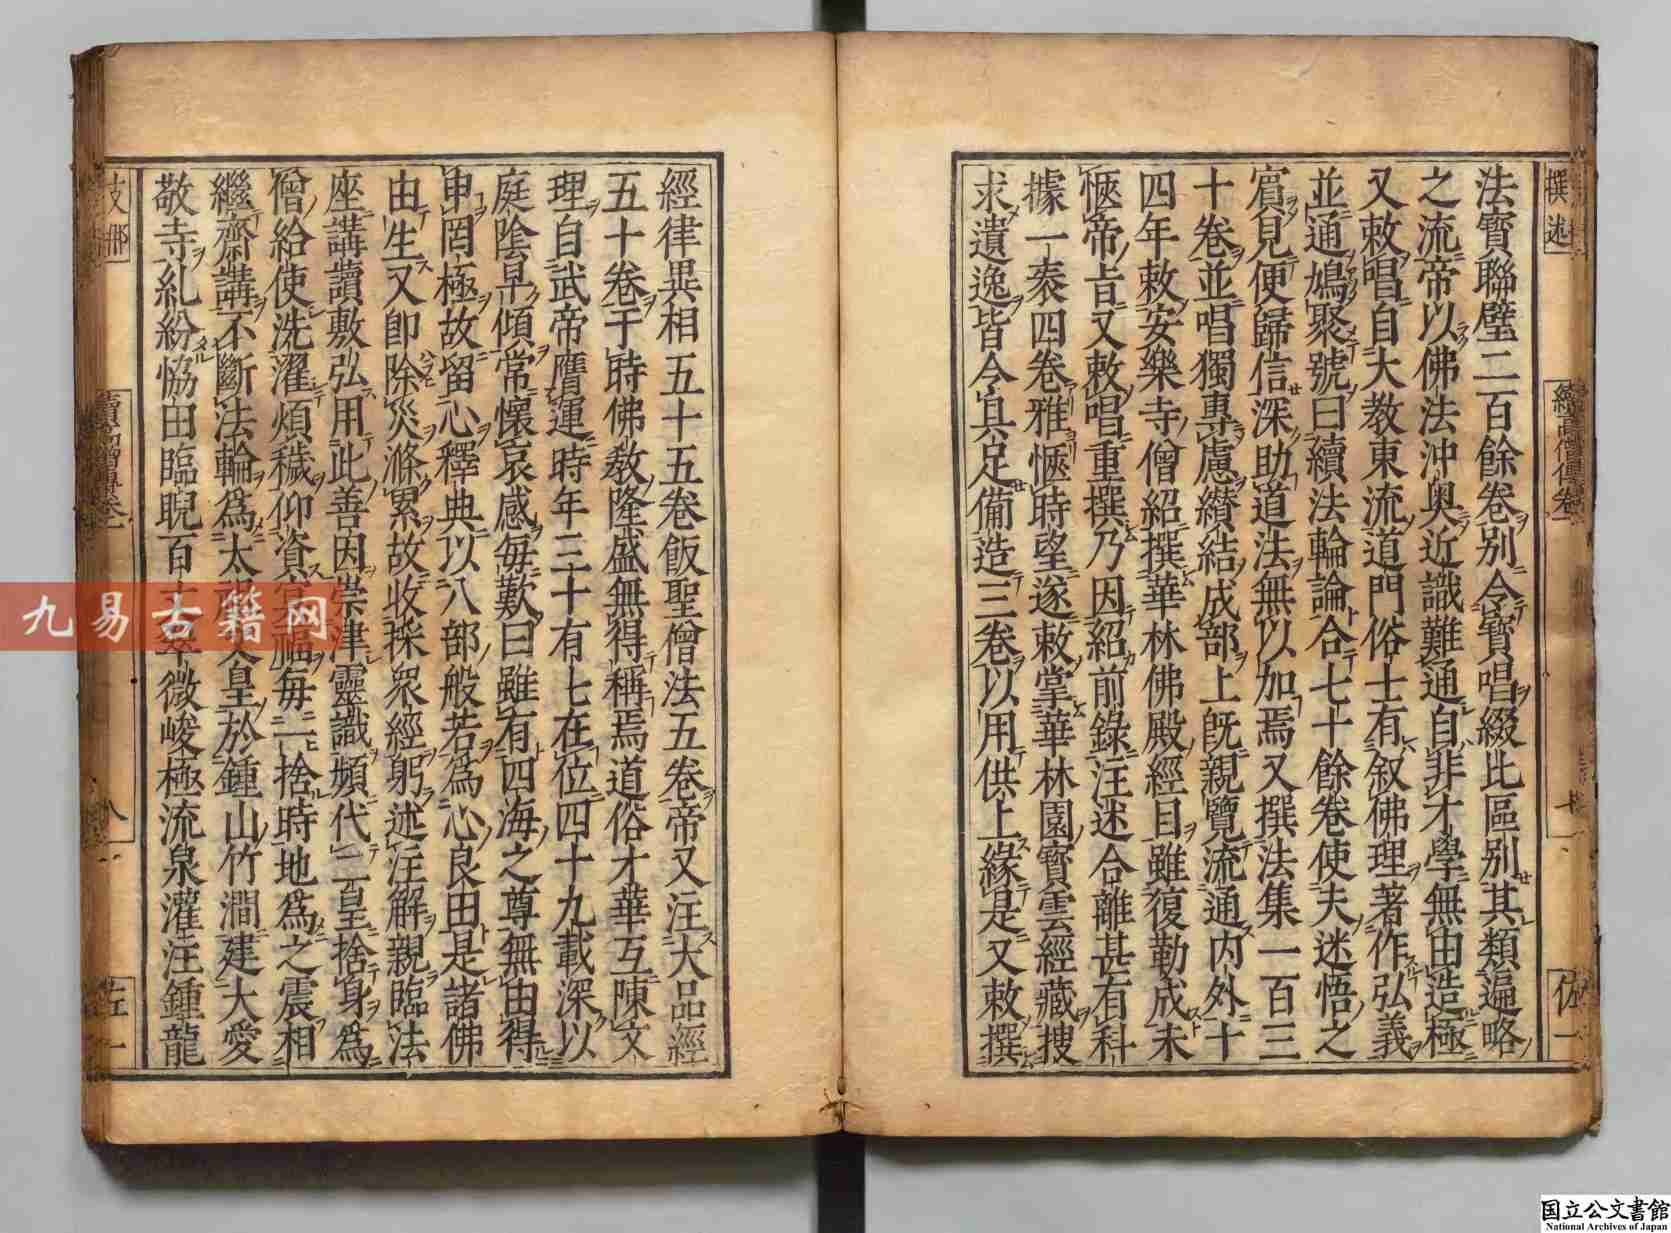 撰述
續高僧傳卷一
佐一
法寶聯璧二百餘卷別令寶唱綴比區別其類遍略
之流帝以佛法沖奧近識難通自非才學無由造極
又敕唱自大教東流道門俗士有敘佛理著作弘義
並通鳩聚號曰續法輪論合七十餘卷使夫迷悟之
賓見便歸信深助道法無以加焉又撰法集一百三
十卷並唱獨專慮纘結成部上既親覽流通內外十
四年敕安樂寺僧紹撰華林佛殿經目雖復勒成未
愜帝旨又敕唱重撰乃因紹前錄注述合離甚有科
據一袠四卷雅愜時望遂敕掌華林園寶雲經藏搜
求遺逸皆令具足備造三卷以用供上緣是又敕撰
經律異相五十五卷飯聖僧法五卷帝又注大品經
五十卷于時佛教隆盛無得稱焉道俗才華互陳文
理自武帝膺運時年三十有七在位四十九載深以
庭陰早傾常懷哀感每歎曰雖有四海之尊無由得
申罔極故留心釋典以八部般若為心良田是諸佛
由生又即除災滌累故收採眾經躬述注解親臨法
座講讀敷弘用此善因崇津靈識頻代二皇捨身為
僧給使洗濯煩穢仰資冥福每一捨時地為之震相
繼齋講不斷法輪為太祖文皇於鍾山竹澗建大愛
敬寺糺紛協田臨睨百丈翠微峻極流泉灌注鍾龍
支那
續高僧傳卷一
八
左一
九易古籍网
国立公文書館
National Archives of Japan